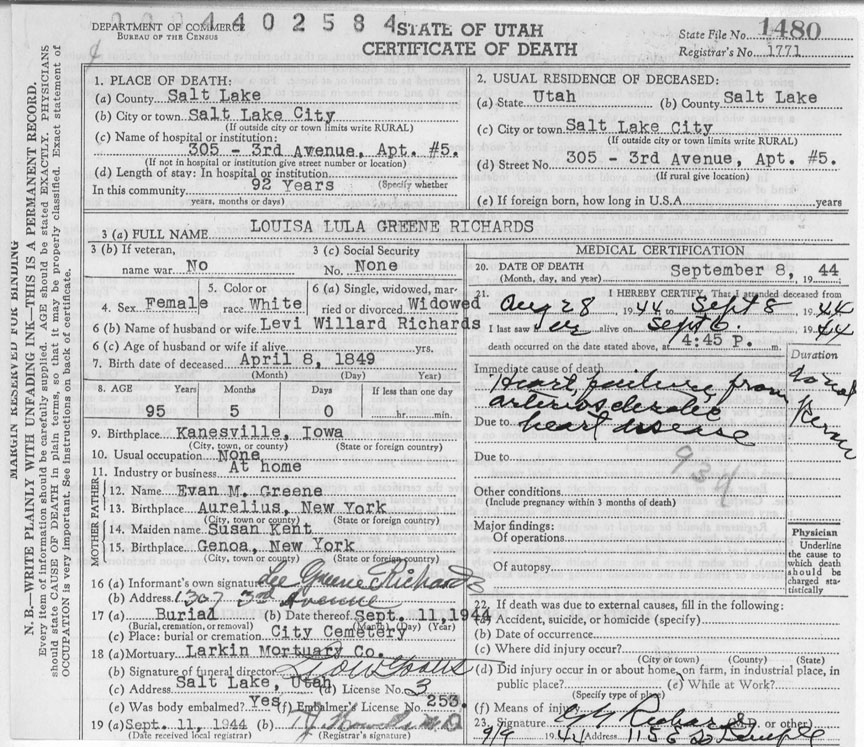 0 0 0 4 4 0 2 5 8 4
DEPARTMENT OF COMMERCE
BUREAU OF THE CENSUS
STATE OF UTAH
CERTIFICATE OF DEATH
State File No. 1480
Registrar's No. 1771
MARGIN RESERVED FOR BINDING
N. B.—WRITE PLAINLY WITH UNFADING INK—THIS IS A PERMANENT RECORD.
Every item of information should be carefully supplied. AGE should be stated EXACTLY. PHYSICIANS
should state CAUSE OF DEATH in plain terms, so that it may be properly classified. Exact statement of
OCCUPATION is very important. See instructions on back of certificate.
1. PLACE OF DEATH:
(a) County Salt Lake
(b) City or town Salt Lake City
(If outside city or town limits write RURAL)
(c) Name of hospital or institution:
305 - 3rd Avenue, Apt. #5.
(If not in hospital or institution give street number or location)
(d) Length of stay: In hospital or institution
In this community 92 Years (Specify whether
years, months or days)
2. USUAL RESIDENCE OF DECEASED:
(a) State Utah (b) County Salt Lake
(c) City or town Salt Lake City
(If outside city or town limits write RURAL)
(d) Street No. 305 - 3rd Avenue, Apt. #5.
(If rural give location)
(e) If foreign born, how long in U.S.A. years
3 (a) FULL NAME LOUISA LULA GREENE RICHARDS
3 (b) If veteran,
name war. No
3 (c) Social Security
No. None
4. Sex Female
5. Color or
race White
6 (a) Single, widowed, mar-
ried or divorced. Widowed
6 (b) Name of husband or wife Levi Willard Richards
6 (c) Age of husband or wife if alive yrs.
7. Birth date of deceased April 8, 1849
(Month) (Day) (Year)
8. AGE Years Months Days If less than one day
95 5 0 hr. min.
9. Birthplace Kanesville, Iowa
(City, town, or county) (State or foreign country)
10. Usual occupation None
11. Industry or business At home
FATHER
12. Name Evan M. Greene
13. Birthplace Aurelius, New York
(City, town or county) (State or foreign country)
MOTHER
14. Maiden name Susan Kent
15. Birthplace Genoa, New York
(City, town or county) (State or foreign country)
16 (a) Informant's own signature Lee Greene Richards
(b) Address 1307 3rd Avenue
17 (a) Burial (b) Date thereof Sept. 11, 1944
(Burial, cremation, or removal) (Month) (Day) (Year)
(c) Place: burial or cremation City Cemetery
18 (a) Mortuary Larkin Mortuary Co.
(b) Signature of funeral director
(c) Address Salt Lake, Utah (d) License No. 3
(e) Was body embalmed? Yes (f) Embalmer's License No. 253.
19 (a) Sept. 11, 1944 (b) M.D.
(Date received local registrar) (Registrar's signature)
MEDICAL CERTIFICATION
20. DATE OF DEATH
(Month, day, and year) September 8, 1944
21. I HEREBY CERTIFY, That I attended deceased from
Aug 28 1944 to Sept 8 1944
I last saw her alive on Sept 6. 1944
death occurred on the date stated above, at 4:45 P. m.
Duration
Immediate cause of death
Heart failure from
arteriosclerotic
Due to heart disease
Due to
Other conditions
(Include pregnancy within 3 months of death)
Major findings:
Of operations
Of autopsy
Physician
Underline
the cause to
which death
should be
charged sta-
tistically
22. If death was due to external causes, fill in the following:
(a) Accident, suicide, or homicide (specify)
(b) Date of occurrence
(c) Where did injury occur?
(City or town) (County) (State)
(d) Did injury occur in or about home, on farm, in industrial place, in
public place? (e) While at Work?
(Specify type of place)
(f) Means of injury
23. Signature G G Richards (M.D. or other)
9/9 1944 Address 115 E So Temple